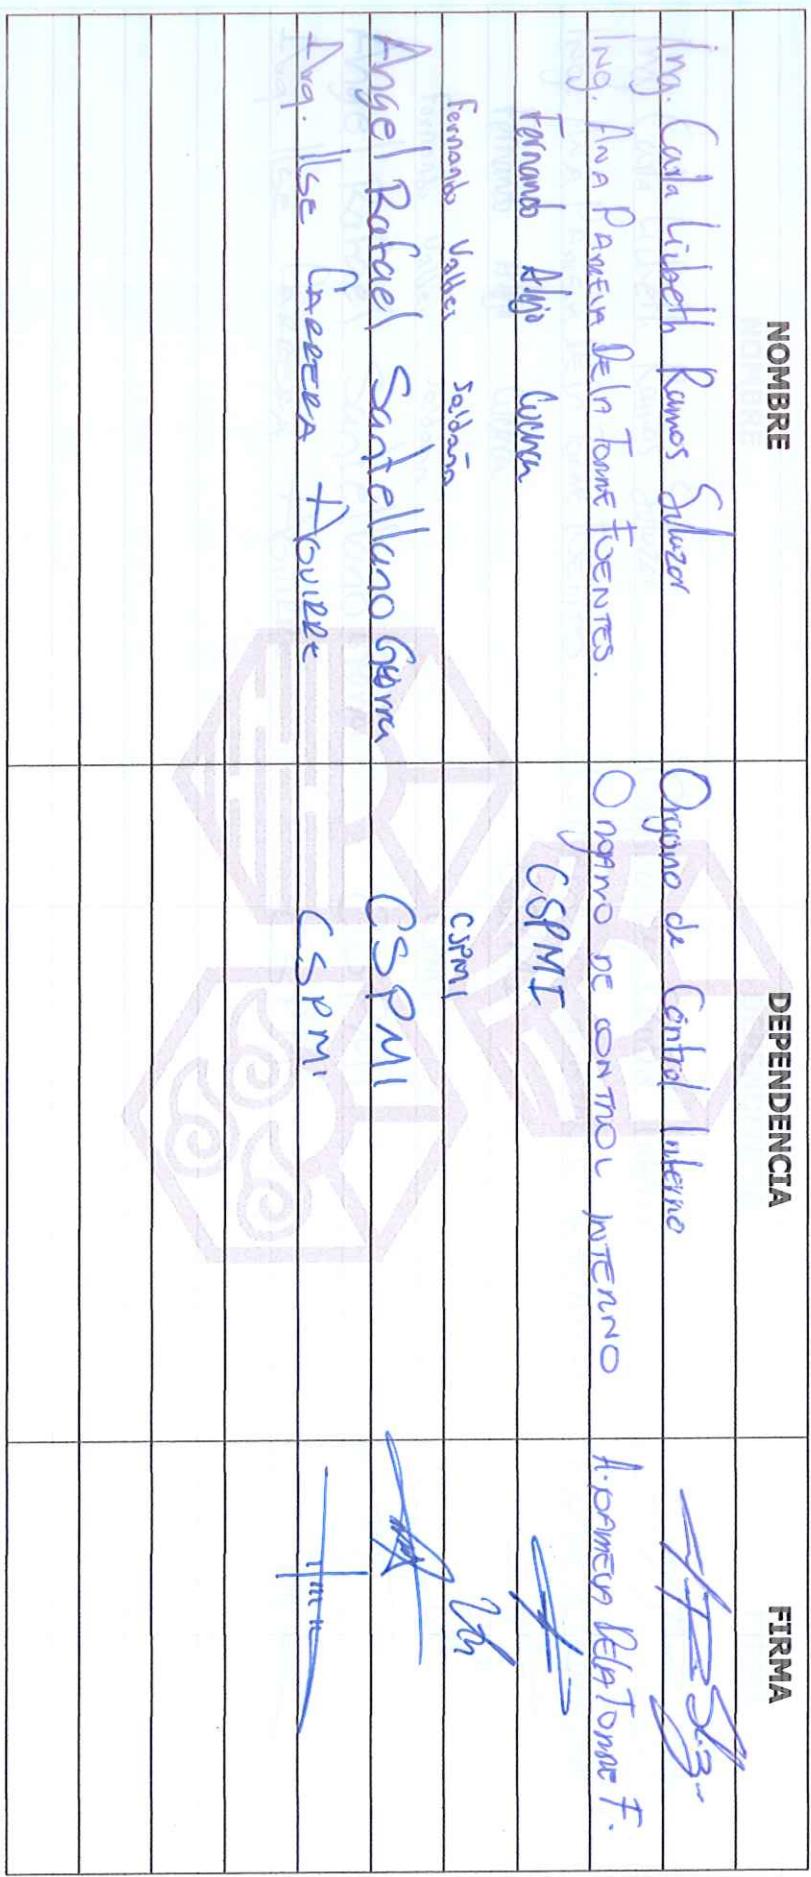 NOMBRE DEPENDENCIA FIRMA
Ing. Carla Lizbeth Ramos Salazar Organo de Control Interno
Ing. ANA PAMELA DE LA TORRE FUENTES. ORGANO DE CONTROL INTERNO A. PAMELA DE LA TORRE F.
Fernando Alejo CSPMI
Fernando Valdez Saldaña CSPMI
Angel Rafael Santellano Guerra CSPMI
Arq. Ilse CARRERA AGUIRRE CSPMI